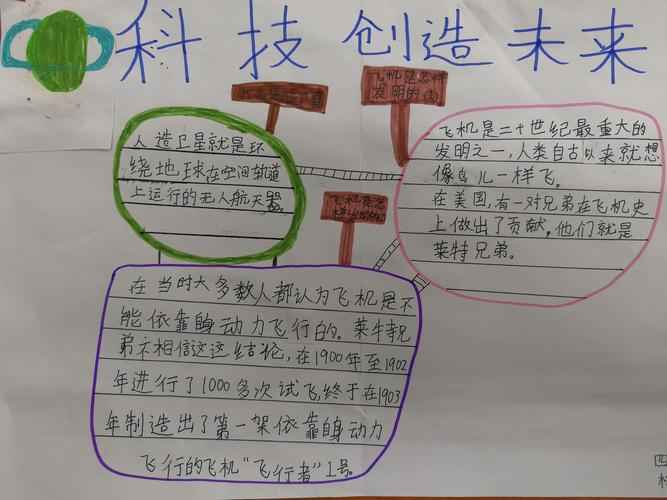 科技创造未来
飞机是怎样
发明的
人造卫星就是环
绕地球在空间轨道
上运行的无人航天器。
飞机是二十世纪最重大的
发明之一,人类自古以来就想
像鸟儿一样飞。
在美国,有一对兄弟在飞机史
上做出了贡献,他们就是
莱特兄弟。
在当时大多数人都认为飞机是不
能依靠自身动力飞行的。莱特兄
弟不相信这这结论,在1900年至1902
年进行了1000多次试飞,终于在1903
年制造出了第一架依靠自身动力
飞行的飞机“飞行者”1号。
四